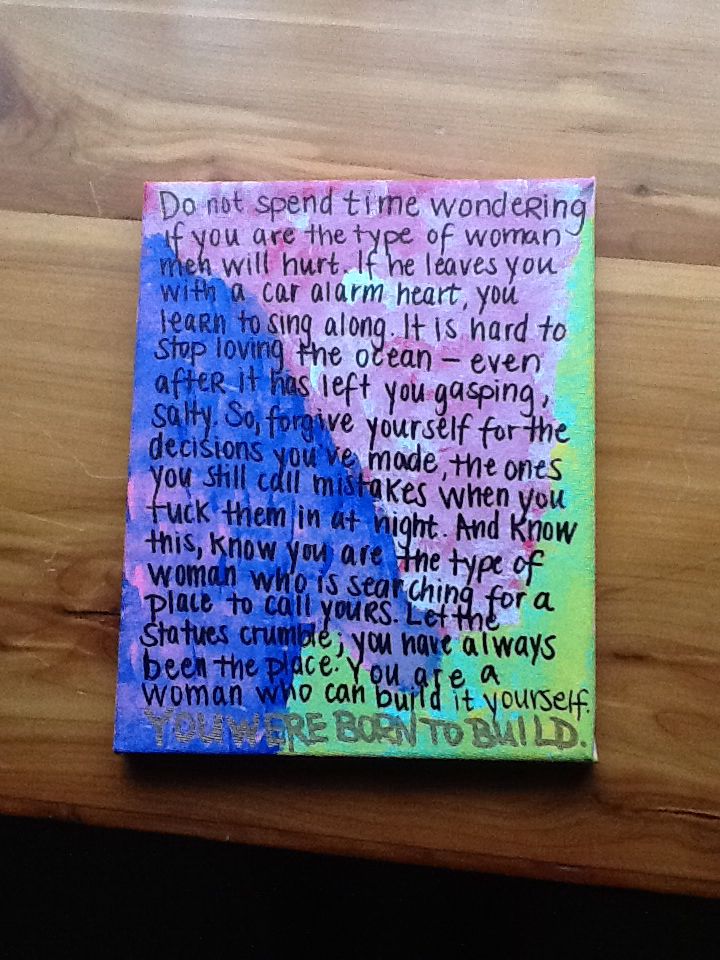 Do not spend time wondering
if you are the type of woman
men will hurt. If he leaves you
with a car alarm heart, you
learn to sing along. It is hard to
stop loving the ocean – even
after it has left you gasping,
salty. So, forgive yourself for the
decisions you've made, the ones
you still call mistakes when you
tuck them in at night. And know
this, know you are the type of
woman who is searching for a
place to call yours. Let the
statues crumble; you have always
been the place. You are a
woman who can build it yourself.
YOU WERE BORN TO BUILD.